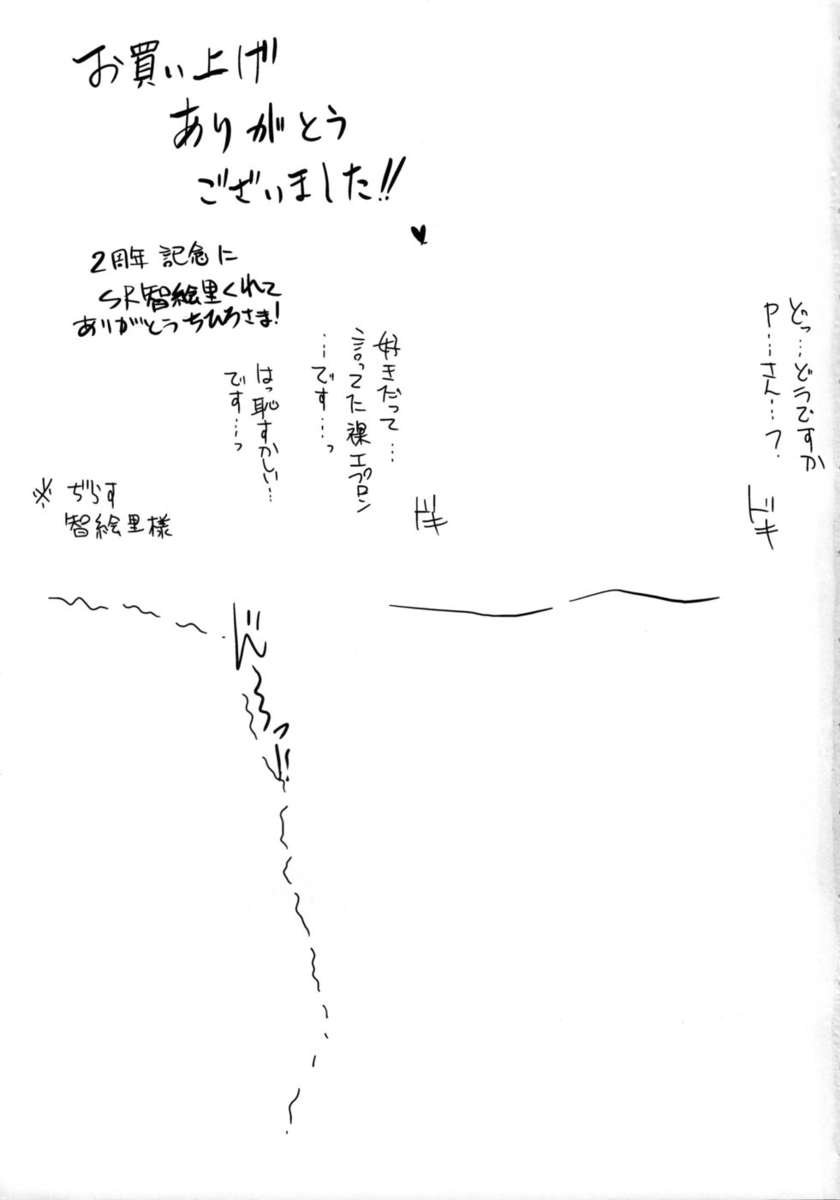 お買い上げ
ありがとう
ございました!!
2周年 記念に
SR智絵里くれて
ありがとうちひろさま!
どっ…どうですか
P…さん…?
好きだって…
言ってた裸エプロン
…です…っ
はっ恥ずかしい…
です…っ
ドキ
ドキ
智絵里様